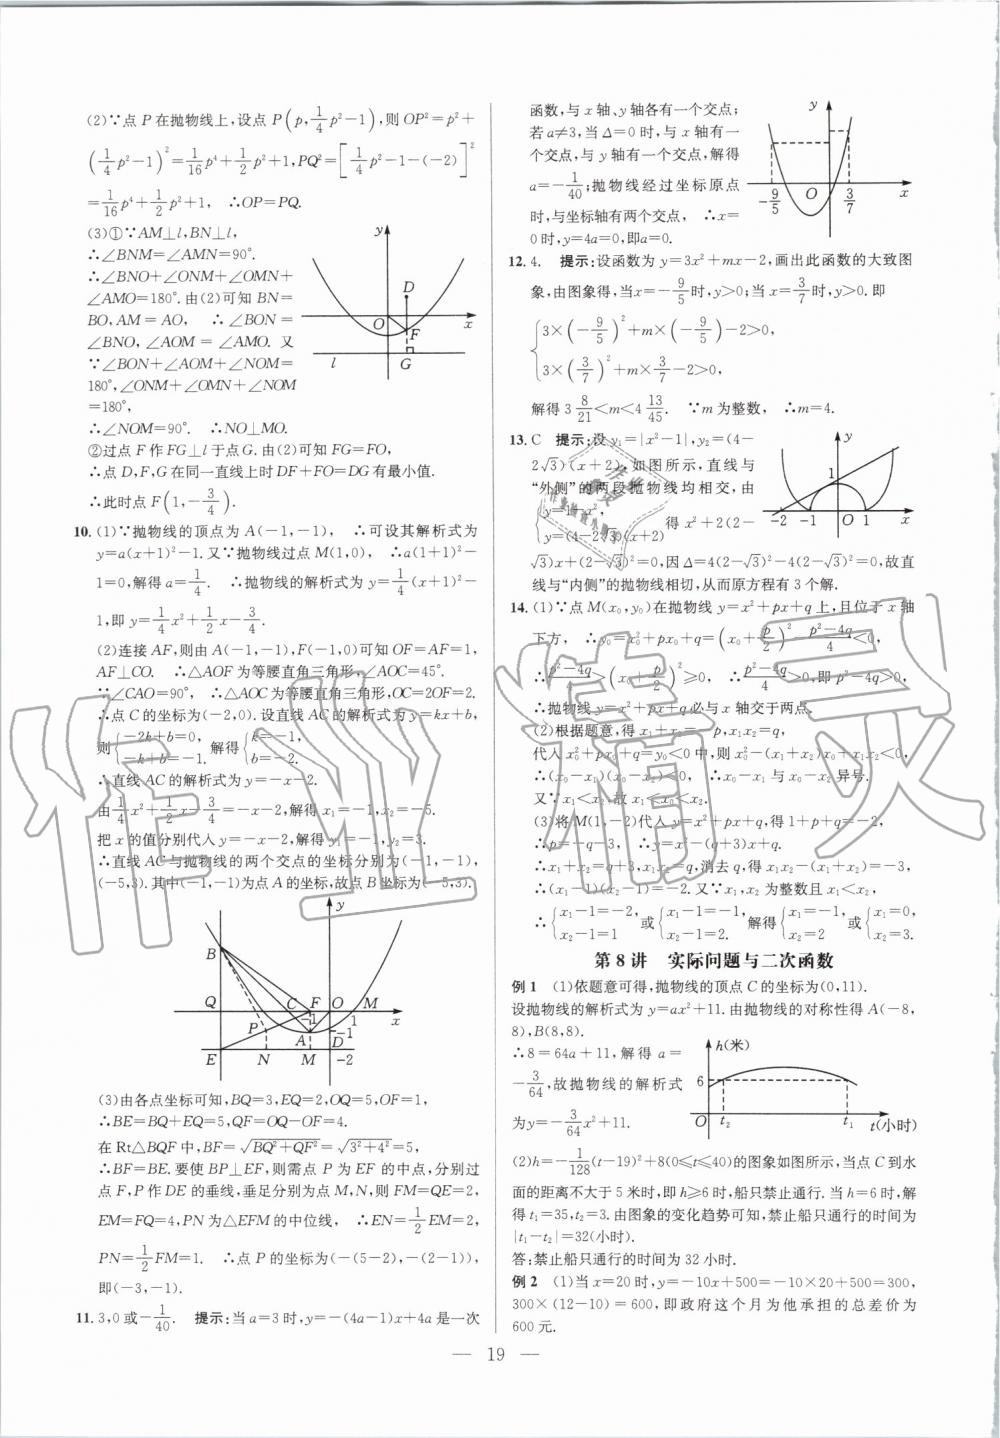 (2)∵点 P 在抛物线上,设点 P(p, 1/4 p²−1),则 OP²=p²+
(1/4 p²−1)²=1/16 p⁴+1/2 p²+1,PQ²=[1/4 p²−1−(−2)]²
=1/16 p⁴+1/2 p²+1, ∴OP=PQ.
(3)①∵AM⊥l,BN⊥l,
∴∠BNM=∠AMN=90°.
∴∠BNO+∠ONM+∠OMN+
∠AMO=180°.由(2)可知 BN=
BO,AM=AO, ∴∠BON=
∠BNO,∠AOM=∠AMO. 又
∵∠BON+∠AOM+∠NOM=
180°,∠ONM+∠OMN+∠NOM
=180°,
∴∠NOM=90°. ∴NO⊥MO.
y D O F x l G
②过点 F 作 FG⊥l 于点 G.由(2)可知 FG=FO,
∴点 D,F,G 在同一直线上时 DF+FO=DG 有最小值.
∴此时点 F(1,−3/4).
10. (1)∵抛物线的顶点为 A(−1,−1), ∴可设其解析式为
y=a(x+1)²−1.又∵抛物线过点 M(1,0), ∴a(1+1)²−
1=0,解得 a=1/4. ∴抛物线的解析式为 y=1/4(x+1)²−
1,即 y=1/4 x²+1/2 x−3/4.
(2)连接 AF,则由 A(−1,−1),F(−1,0)可知 OF=AF=1,
AF⊥CO. ∴△AOF 为等腰直角三角形,∠AOC=45°.
∵∠CAO=90°, ∴△AOC 为等腰直角三角形,OC=2OF=2.
∴点 C 的坐标为(−2,0).设直线 AC 的解析式为 y=kx+b,
则{−2k+b=0, −k+b=−1. 解得{k=−1, b=−2.
∴直线 AC 的解析式为 y=−x−2.
由 1/4 x²+1/2 x−3/4=−x−2,解得 x₁=−1,x₂=−5.
把 x 的值分别代入 y=−x−2,解得 y₁=−1,y₂=3.
∴直线 AC 与抛物线的两个交点的坐标分别为(−1,−1),
(−5,3).其中(−1,−1)为点 A 的坐标,故点 B 坐标为(−5,3).
y B Q C F O M −1 1 x P −1 A D E N M −2
(3)由各点坐标可知,BQ=3,EQ=2,OQ=5,OF=1,
∴BE=BQ+EQ=5,QF=OQ−OF=4.
在 Rt△BQF 中,BF=√(BQ²+QF²)=√(3²+4²)=5,
∴BF=BE.要使 BP⊥EF,则需点 P 为 EF 的中点,分别过
点 F,P 作 DE 的垂线,垂足分别为点 M,N,则 FM=QE=2,
EM=FQ=4,PN 为△EFM 的中位线, ∴EN=1/2 EM=2,
PN=1/2 FM=1. ∴点 P 的坐标为(−(5−2),−(2−1)),
即(−3,−1).
11. 3,0 或−1/40. 提示:当 a=3 时,y=−(4a−1)x+4a 是一次
函数,与 x 轴、y 轴各有一个交点;
若 a≠3,当 Δ=0 时,与 x 轴有一
个交点,与 y 轴有一个交点,解得
a=−1/40;抛物线经过坐标原点
时,与坐标轴有两个交点, ∴x=
0 时,y=4a=0,即 a=0.
y −9/5 O 3/7 x
12. 4. 提示:设函数为 y=3x²+mx−2,画出此函数的大致图
象,由图象得,当 x=−9/5 时,y>0;当 x=3/7 时,y>0.即
{3×(−9/5)²+m×(−9/5)−2>0,
3×(3/7)²+m×3/7−2>0,
解得 3 8/21<m<4 13/45. ∵m 为整数, ∴m=4.
13. C 提示:设 y₁=|x²−1|,y₂=(4−
2√3)(x+2).如图所示,直线与
“外侧”的两段抛物线均相交,由
{y=1−x², y=(4−2√3)(x+2) 得 x²+2(2−
√3)x+(2−√3)²=0,因 Δ=4(2−√3)²−4(2−√3)²=0,故直
线与“内侧”的抛物线相切,从而原方程有 3 个解.
y 1 −2 −1 O 1 x
14. (1)∵点 M(x₀,y₀)在抛物线 y=x²+px+q 上,且位于 x 轴
下方, ∴y₀=x₀²+px₀+q=(x₀+p/2)²−(p²−4q)/4<0,
∴(p²−4q)/4>(x₀+p/2)²≥0, ∴(p²−4q)/4>0,即 p²−4q>0,
∴抛物线 y=x²+px+q 必与 x 轴交于两点.
(2)根据题意,得 x₁+x₂=−p,x₁x₂=q,
代入 x₀²+px₀+q=y₀<0 中,则 x₀²−(x₁+x₂)x₀+x₁x₂<0.
∴(x₀−x₁)(x₀−x₂)<0, ∴x₀−x₁ 与 x₀−x₂ 异号.
又∵x₁<x₂.故 x₁<x₀<x₂.
(3)将 M(1,−2)代入 y=x²+px+q,得 1+p+q=−2,
∴p=−q−3, ∴y=x²−(q+3)x+q.
∴x₁+x₂=q+3,x₁x₂=q,消去 q,得 x₁x₂−(x₁+x₂)=−3.
∴(x₁−1)(x₂−1)=−2.又∵x₁,x₂ 为整数且 x₁<x₂,
∴{x₁−1=−2, x₂−1=1 或{x₁−1=−1, x₂−1=2, 解得{x₁=−1, x₂=2 或{x₁=0, x₂=3.
第 8 讲 实际问题与二次函数
例 1 (1)依题意可得,抛物线的顶点 C 的坐标为(0,11).
设抛物线的解析式为 y=ax²+11.由抛物线的对称性得 A(−8,
8),B(8,8).
∴8=64a+11,解得 a=
−3/64,故抛物线的解析式
为 y=−3/64 x²+11.
h(米) 6 O t₂ t₁ t(小时)
(2)h=−1/128(t−19)²+8(0≤t≤40)的图象如图所示,当点 C 到水
面的距离不大于 5 米时,即 h≥6 时,船只禁止通行.当 h=6 时,解
得 t₁=35,t₂=3.由图象的变化趋势可知,禁止船只通行的时间为
|t₁−t₂|=32(小时).
答:禁止船只通行的时间为 32 小时.
例 2 (1)当 x=20 时,y=−10x+500=−10×20+500=300,
300×(12−10)=600,即政府这个月为他承担的总差价为
600 元.
— 19 —
作业精灵